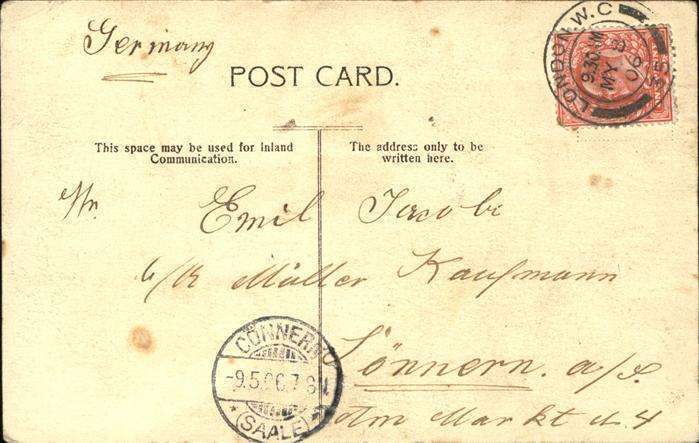 Germany
POST CARD.
LONDON W.C
9.30 AM
MY 8
06
35
This space may be used for Inland
Communication.
The address only to be
written here.
Mr. Emil Jacobi
b/R Müller Kaufmann
Cönnern. a/S.
Am Markt N. 4
CÖNNERN
-9.5.06.7-8N.
* (SAALE) *